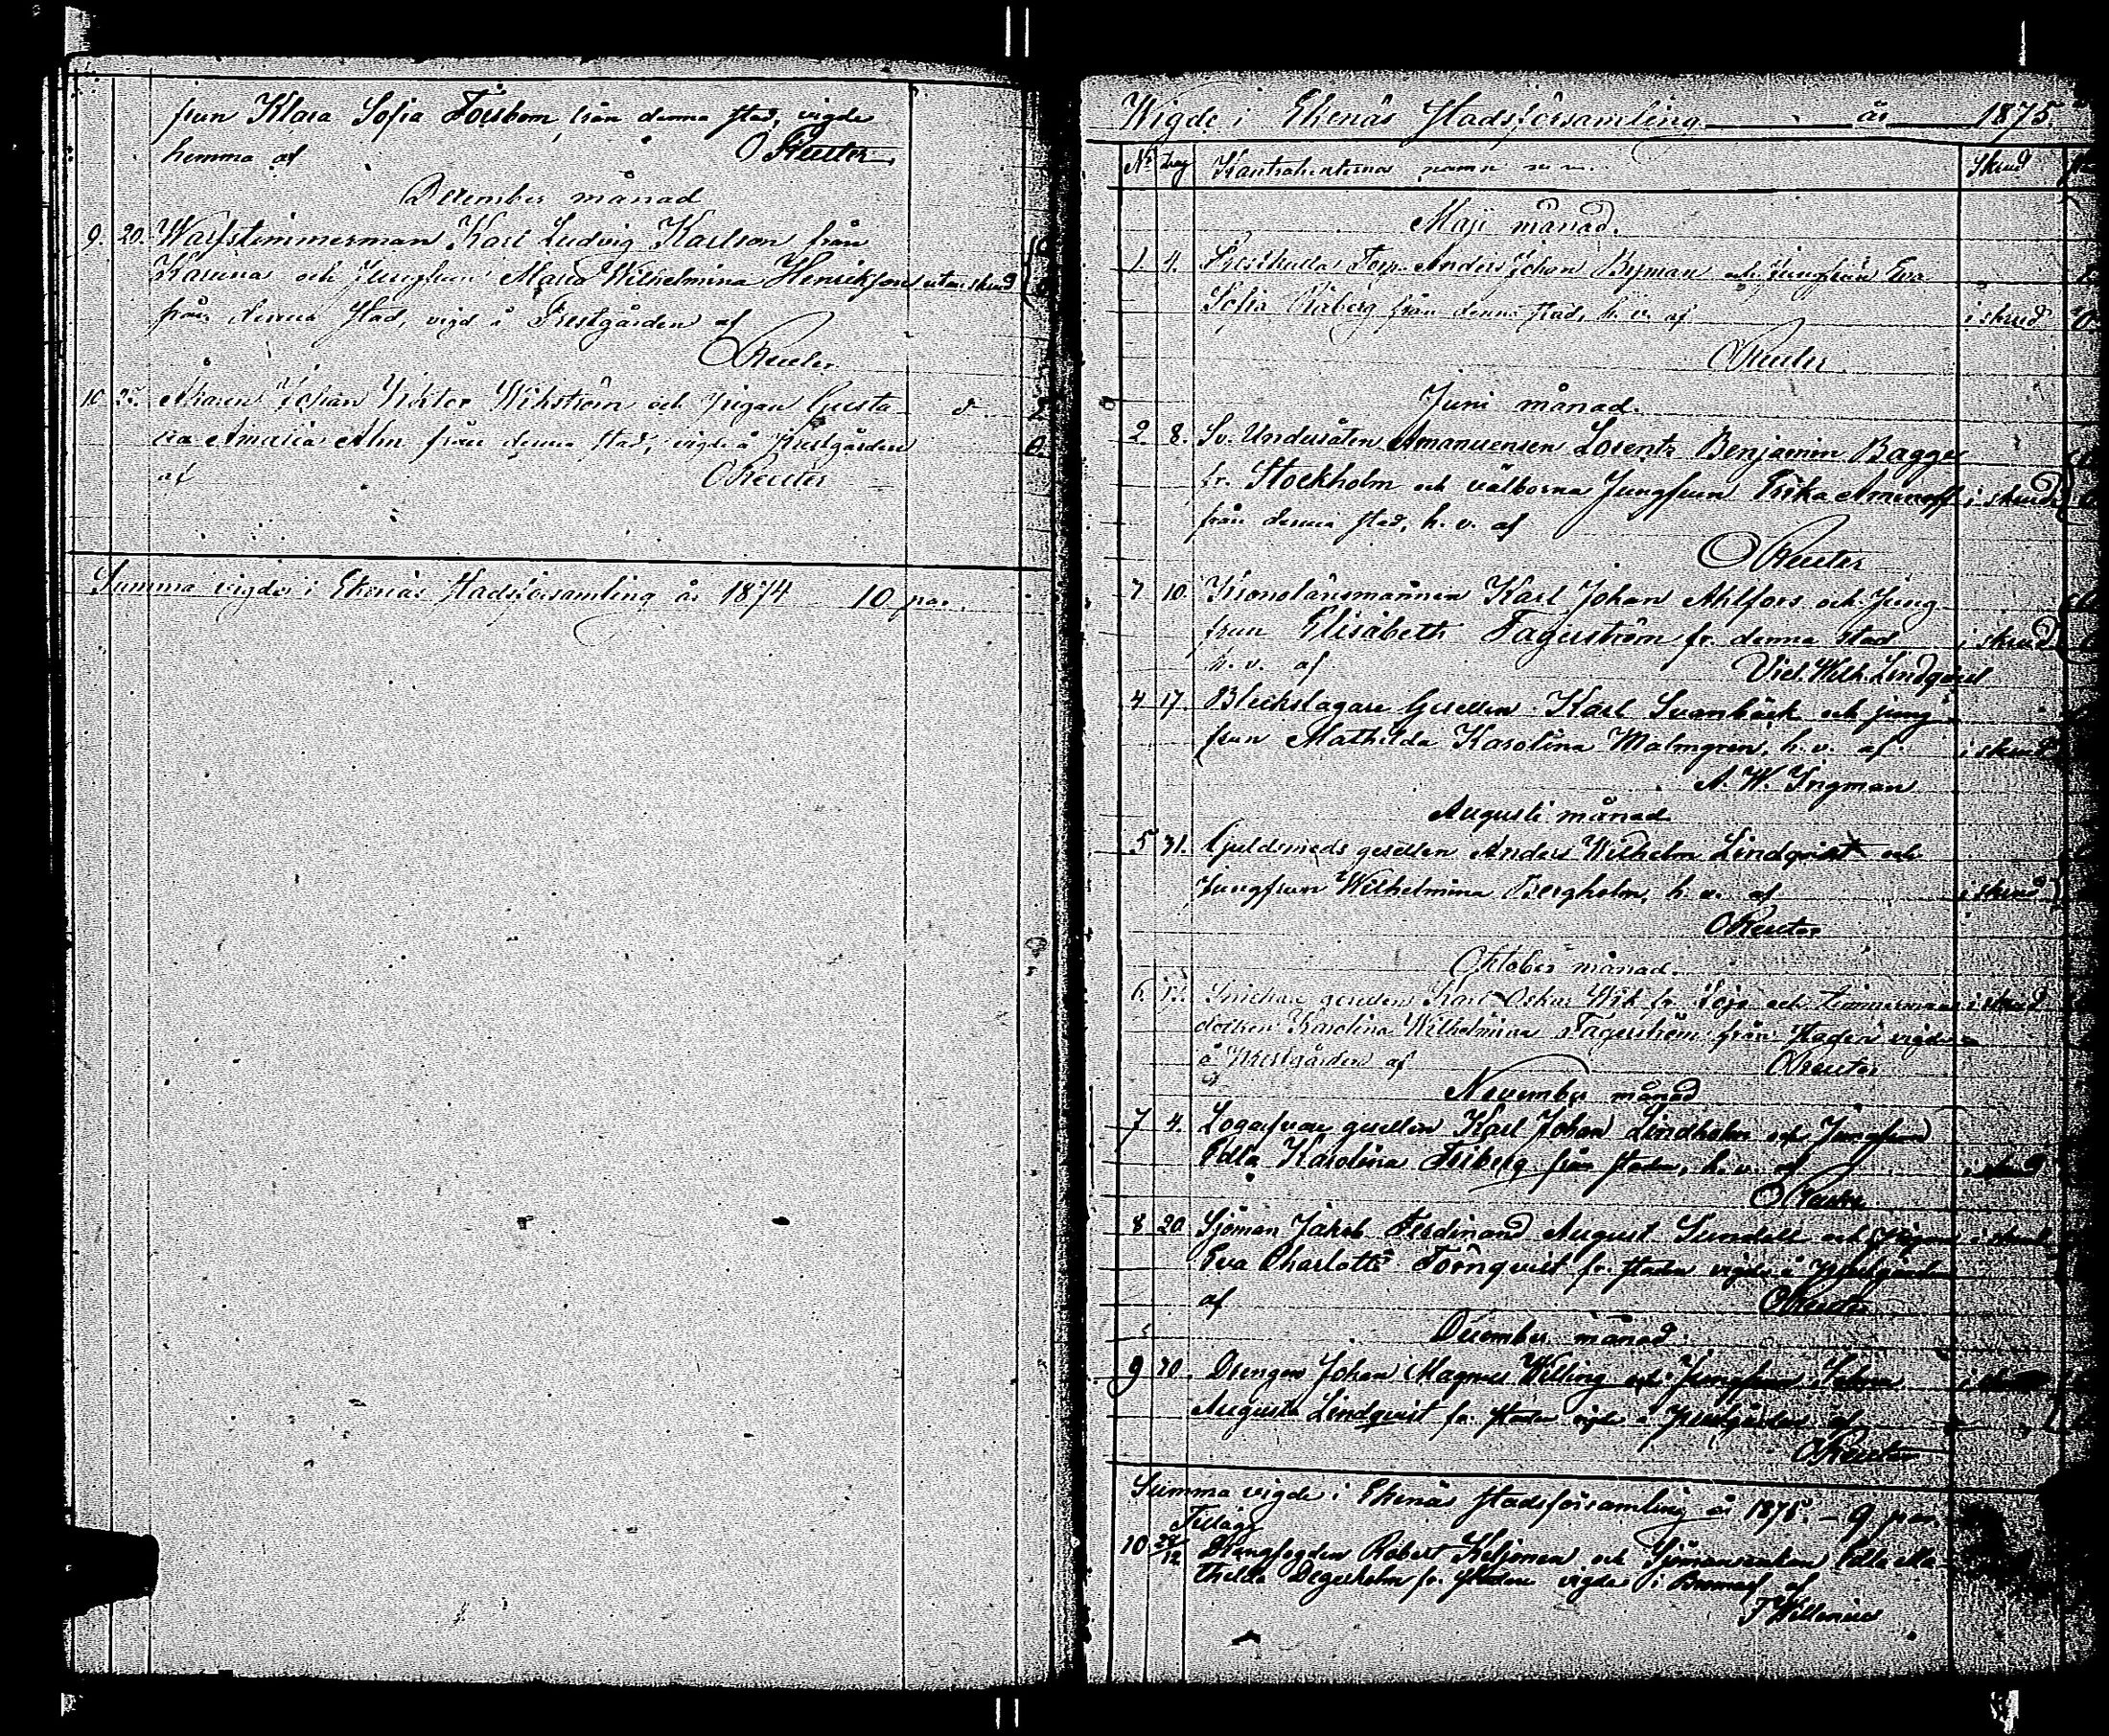 frun Klara Sofia Forsbom från denna stad, vigde
hemma af O Reuter
December månad
9. 20. Warfstimmerman Karl Ludvig Karlson från
Karuna och Jungfrun Maria Wilhelmina Henrikson utan skrud
från denna stad, vigd å Prestgården af
OReuter
10 Johan Viktor Wikström och pigan Gusta
va Amalia Alm från denna stad, vigde å Prestgården
af OReuter
Summa vigde i Ekenäs stadsförsamling år 1874 10 par.
Wigde i Ekenäs Stadsförsamling år 1875
No Dag Kontrahenternas namn m. m. Skrud
Maji månad.
1. 4. Anders Johan Byman och Jungfrun Eva
Sofia från denna stad, h. v. af i skrud
OReuter
Juni månad.
2. 8. Sv. Undersåten Amanuensen Lorentz Benjamin Bagge
fr. Stockholm och välborna Jungfrun Erika Aminoff i skrud
från denna stad, h. v. af
OReuter
3 10. Kronolänsmannen Karl Johan Ahlfors och Jung
frun Elisabeth Fagerström fr. denna stad i skrud
h. v. af Vict. Wilh. Lindqvist
4 17. Bleckslagare Gesellen Karl Svanbäck och jung
frun Mathilda Karolina Malmgren, h. v. af i skrud
A. W. Ingman
Augusti månad.
5 31. Guldsmeds gesellen Anders Wilhelm Lindqvist och
Jungfrun Wilhelmina Bergholm, h. v. af i skrud
OReuter
Oktober månad.
6. Snickare gesellen Karl Oskar Wik fr. Pojo och timmermans i skrud
dottren Karolina Wilhelmina Fagerström från staden vigde
å Prestgården af OReuter
November månad
7 4. Logarfvar gesellen Karl Johan Lindholm och Jungfrun
Edla Karolina Friberg från staden, h. v. af i skrud
OReuter
8 20. Sjöman Jakob Ferdinand August Sundell och pigan i skrud
Eva Charlotta Törnqvist fr. staden vigde å Prestgården
af OReuter
December månad.
9 30. Drengen Johan Magnus Willing och Jungfrun
Augusta Lindqvist fr. staden vigde å prestgården af
OReuter
Summa vigde i Ekenäs stadsförsamling år 1875. - 9 par.
Tillägg
10. 26/12 Robert och Sjömansenkan Edla Ma
thilda Degerholm fr. staden vigde i Bromarf af
F Willenius